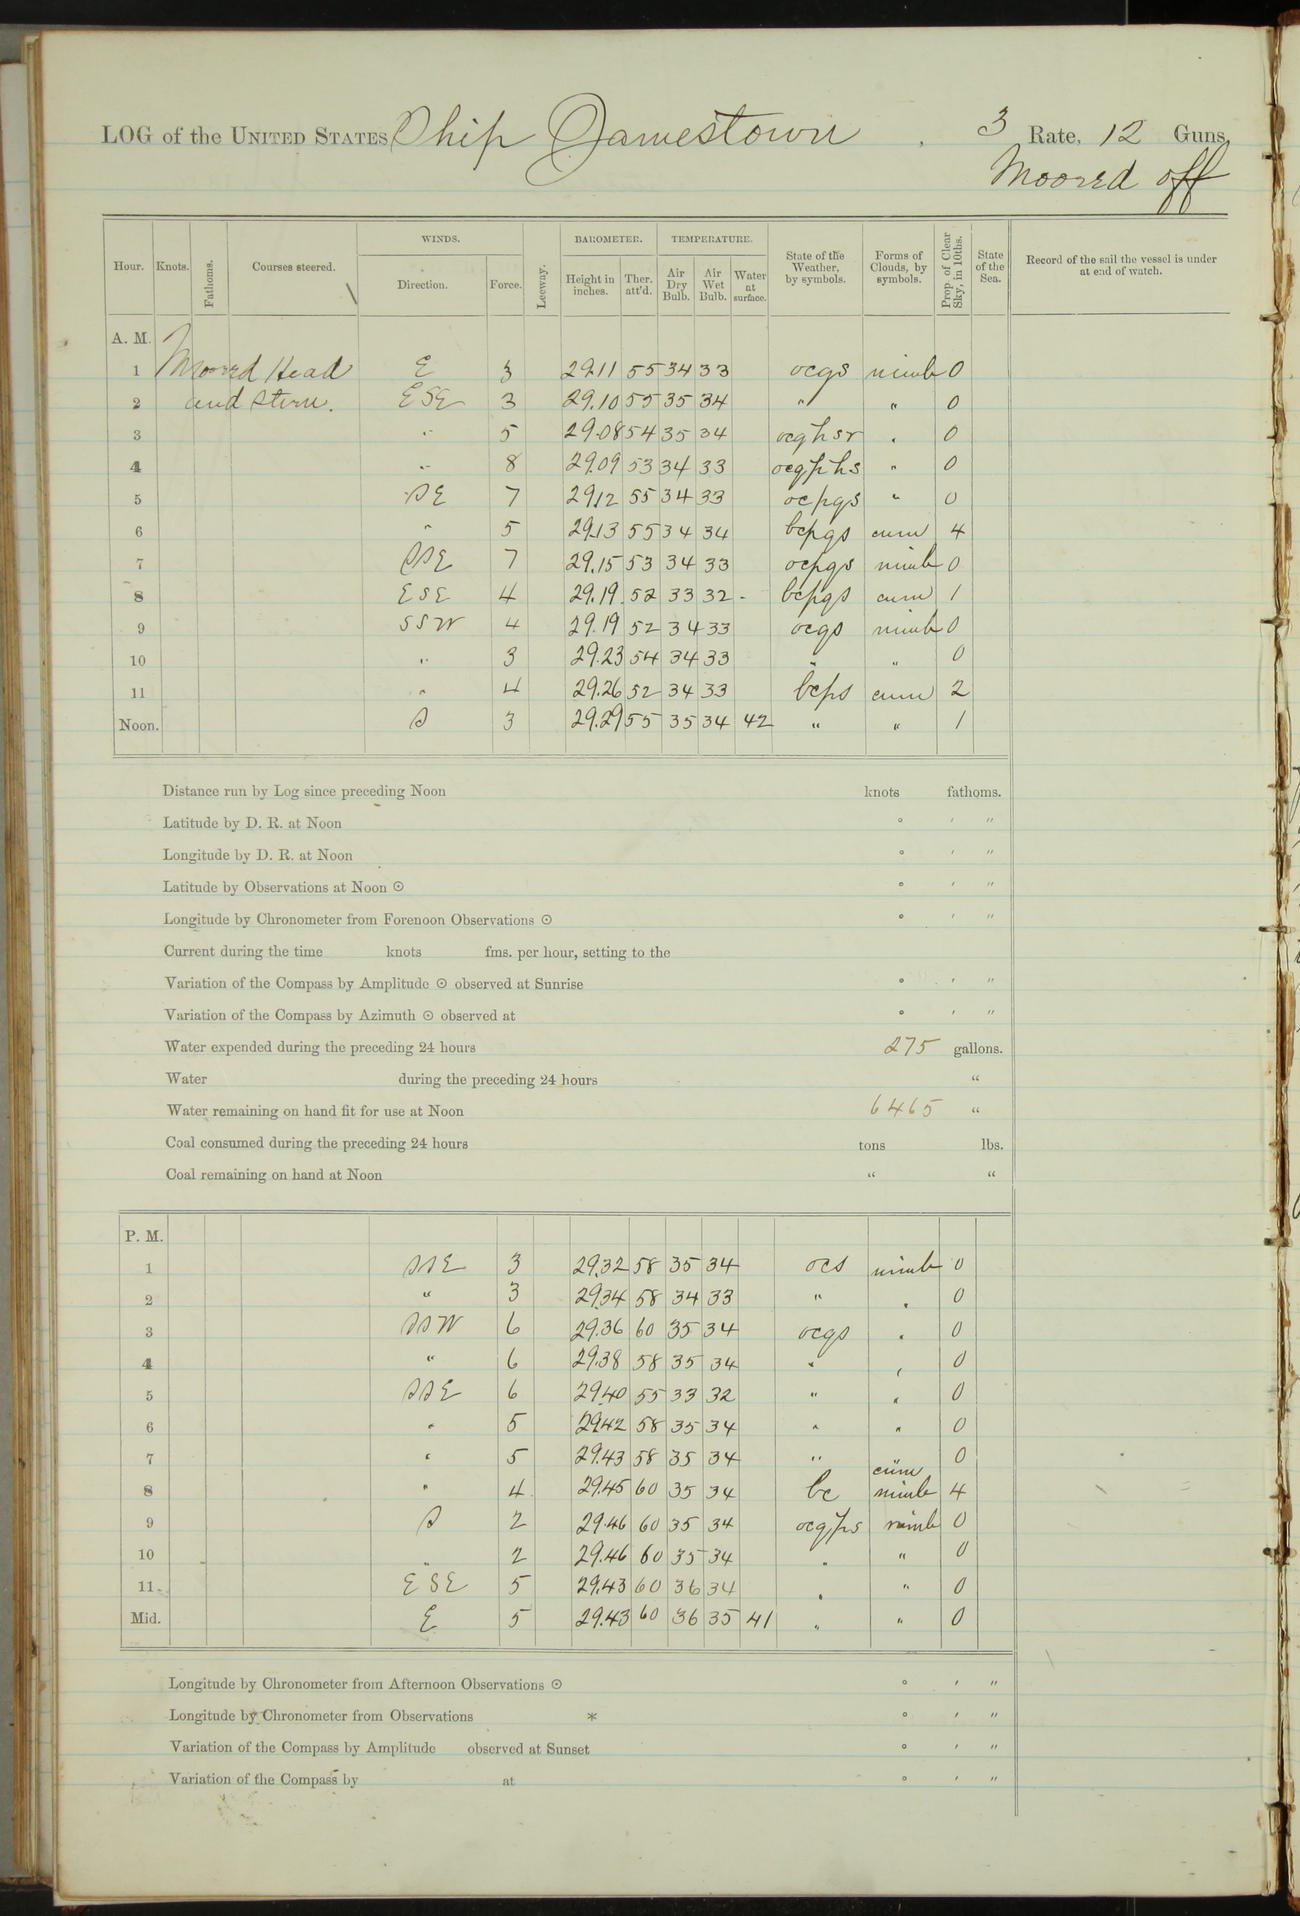 LOG of the UNITED STATES Ship Jamestown , 3 Rate, 12 Guns,
Moored off
Hour. Knots. Fathoms. Courses steered. WINDS. Direction. Force. Leeway. BAROMETER. Height in inches. Ther. att'd. TEMPERATURE. Air Dry Bulb. Air Wet Bulb. Water at surface. State of the Weather, by symbols. Forms of Clouds, by symbols. Prop. of Clear Sky, in 10ths. State of the Sea. Record of the sail the vessel is under at end of watch.
A. M.
1 Moored Head E 3 29.11 55 34 33 ocgs nimb 0
2 and Stern. ESE 3 29.10 55 35 34 " " 0
3 " 5 29.08 54 35 34 ocqhsr " 0
4 " 8 29.09 53 34 33 ocqphs " 0
5 SE 7 29.12 55 34 33 ocpgs " 0
6 " 5 29.13 55 34 34 bcpgs cum 4
7 SSE 7 29.15 53 34 33 ocpgs nimb 0
8 ESE 4 29.19 52 33 32 - bcpgs cum 1
9 SSW 4 29.19 52 34 33 ocgs nimb 0
10 " 3 29.23 54 34 33 " " 0
11 " 4 29.26 52 34 33 bcps cum 2
Noon. S 3 29.29 55 35 34 42 " " 1
Distance run by Log since preceding Noon knots fathoms.
Latitude by D. R. at Noon ° ′ ″
Longitude by D. R. at Noon ° ′ ″
Latitude by Observations at Noon ⊙ ° ′ ″
Longitude by Chronometer from Forenoon Observations ⊙ ° ′ ″
Current during the time knots fms. per hour, setting to the
Variation of the Compass by Amplitude ⊙ observed at Sunrise ° ′ ″
Variation of the Compass by Azimuth ⊙ observed at ° ′ ″
Water expended during the preceding 24 hours 275 gallons.
Water during the preceding 24 hours "
Water remaining on hand fit for use at Noon 6465 "
Coal consumed during the preceding 24 hours tons lbs.
Coal remaining on hand at Noon " "
P. M.
1 SSE 3 29.32 58 35 34 ocs nimb 0
2 " 3 29.34 58 34 33 " " 0
3 SSW 6 29.36 60 35 34 ocgs " 0
4 " 6 29.38 58 35 34 " " 0
5 SSE 6 29.40 55 33 32 " " 0
6 " 5 29.42 58 35 34 " " 0
7 " 5 29.43 58 35 34 " " 0
8 " 4 29.45 60 35 34 bc cum nimb 4
9 S 2 29.46 60 35 34 ocqps nimb 0
10 " 2 29.46 60 35 34 " " 0
11 ESE 5 29.43 60 36 34 " " 0
Mid. E 5 29.43 60 36 35 41 " " 0
Longitude by Chronometer from Afternoon Observations ⊙ ° ′ ″
Longitude by Chronometer from Observations * ° ′ ″
Variation of the Compass by Amplitude observed at Sunset ° ′ ″
Variation of the Compass by at ° ′ ″